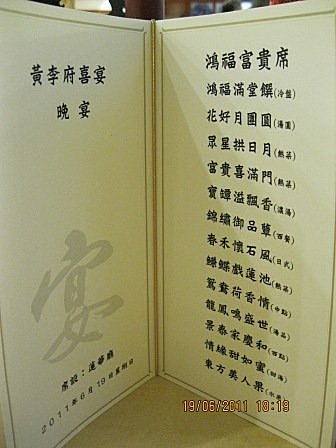 黃李府喜宴
晚宴
宴
席設：蓮華廳
2011年6月19日星期日
鴻福富貴席
鴻福滿堂饌(冷盤)
花好月團圓(湯圓)
眾星拱日月(熱菜)
富貴喜滿門(熱菜)
寶罈溢飄香(濃湯)
錦繡御品蕈(西餐)
春禾懷石風(日式)
鰈戲蓮池(熱菜)
鴛鴦荷香情(中點)
龍鳳鳴盛世(湯品)
景泰家慶和(西點)
情緣甜如蜜(甜湯)
東方美人果
19/06/2011 18:19